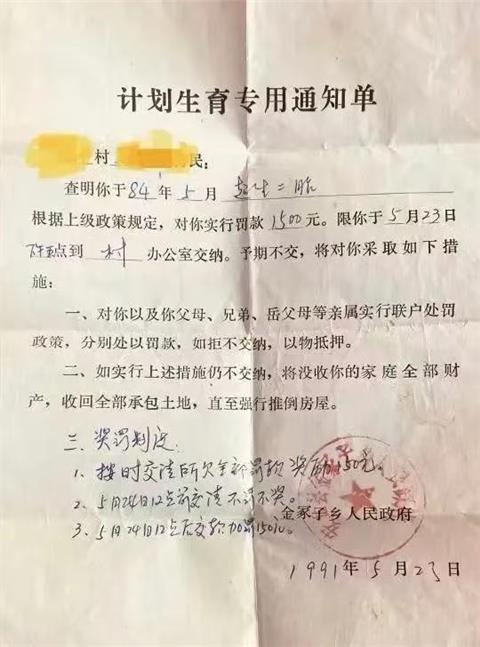 计划生育专用通知单
村 民：
查明你于84年5月超生二胎
根据上级政策规定，对你实行罚款1500元。限你于5月23日
下午点到村办公室交纳。予期不交，将对你采取如下措
施：
一、对你以及你父母、兄弟、岳父母等亲属实行联户处罚
政策，分别处以罚款，如拒不交纳，以物抵押。
二、如实行上述措施仍不交纳，将没收你的家庭全部财
产，收回全部承包土地，直至强行推倒房屋。
三、奖罚制度：
1、按时交清所欠全部罚款奖励150元。
2、5月24日12点前交清不罚不奖。
3、5月24日12点后交款加罚150元。
金冢子乡人民政府
1991年5月23日